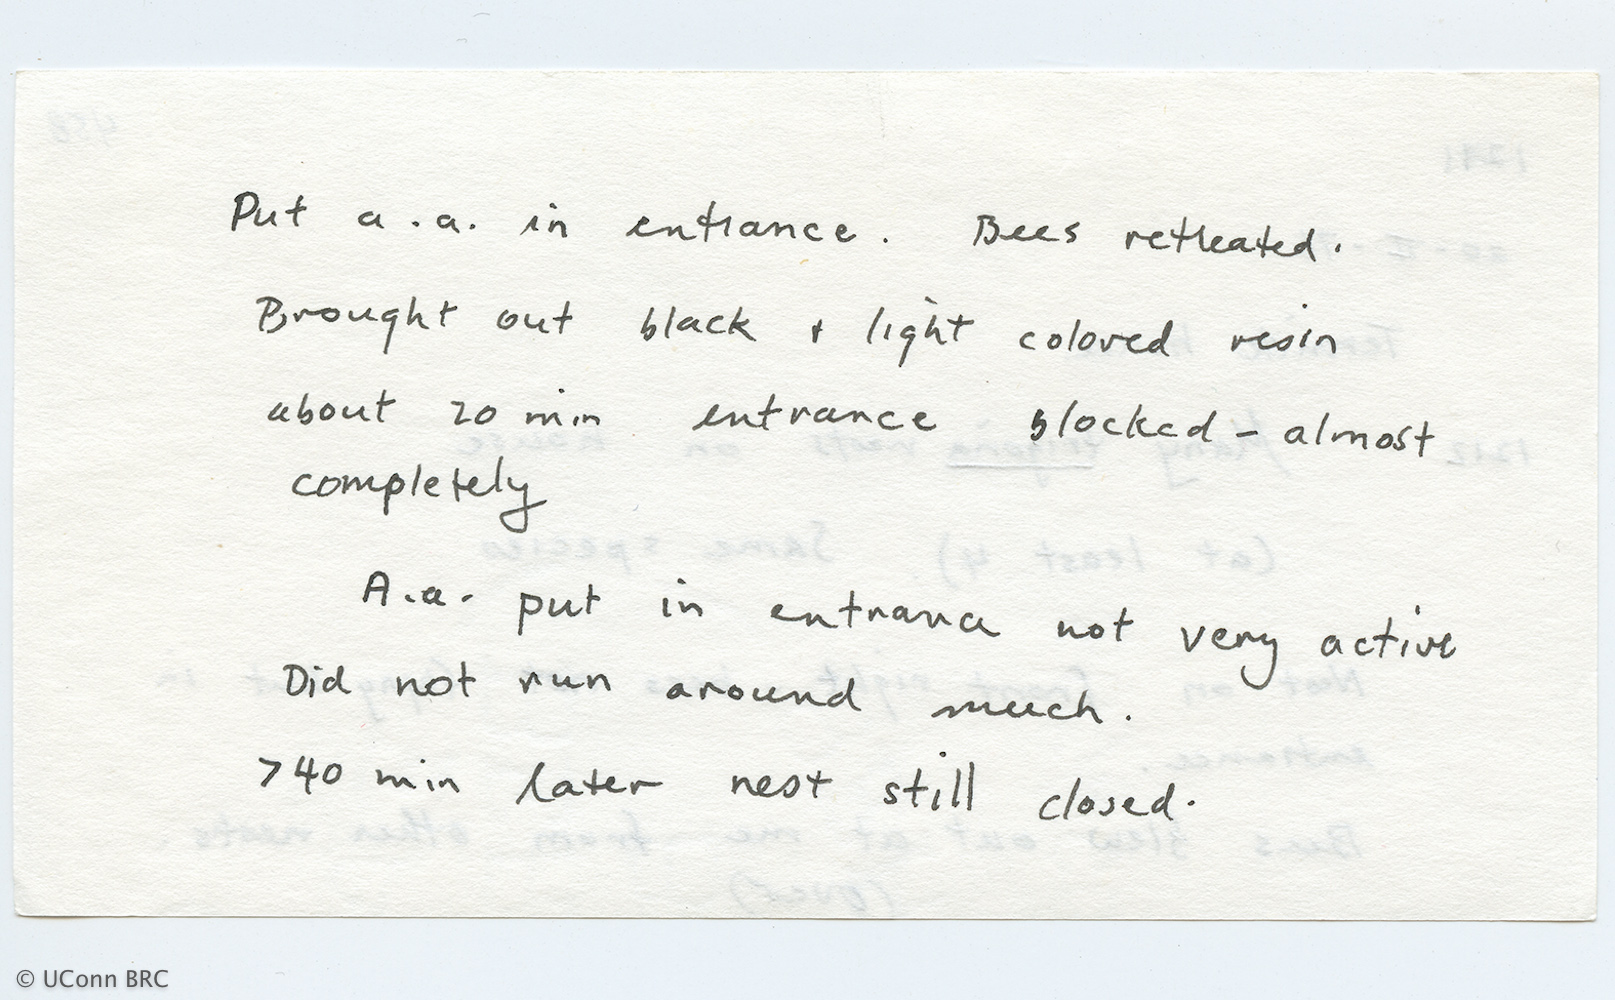 Put a.a. in entrance. Bees retreated.
Brought out black + light colored resin
about 20 min entrance blocked - almost
completely
A.a. put in entrance not very active
Did not run around much.
>40 min later nest still closed.
© UConn BRC